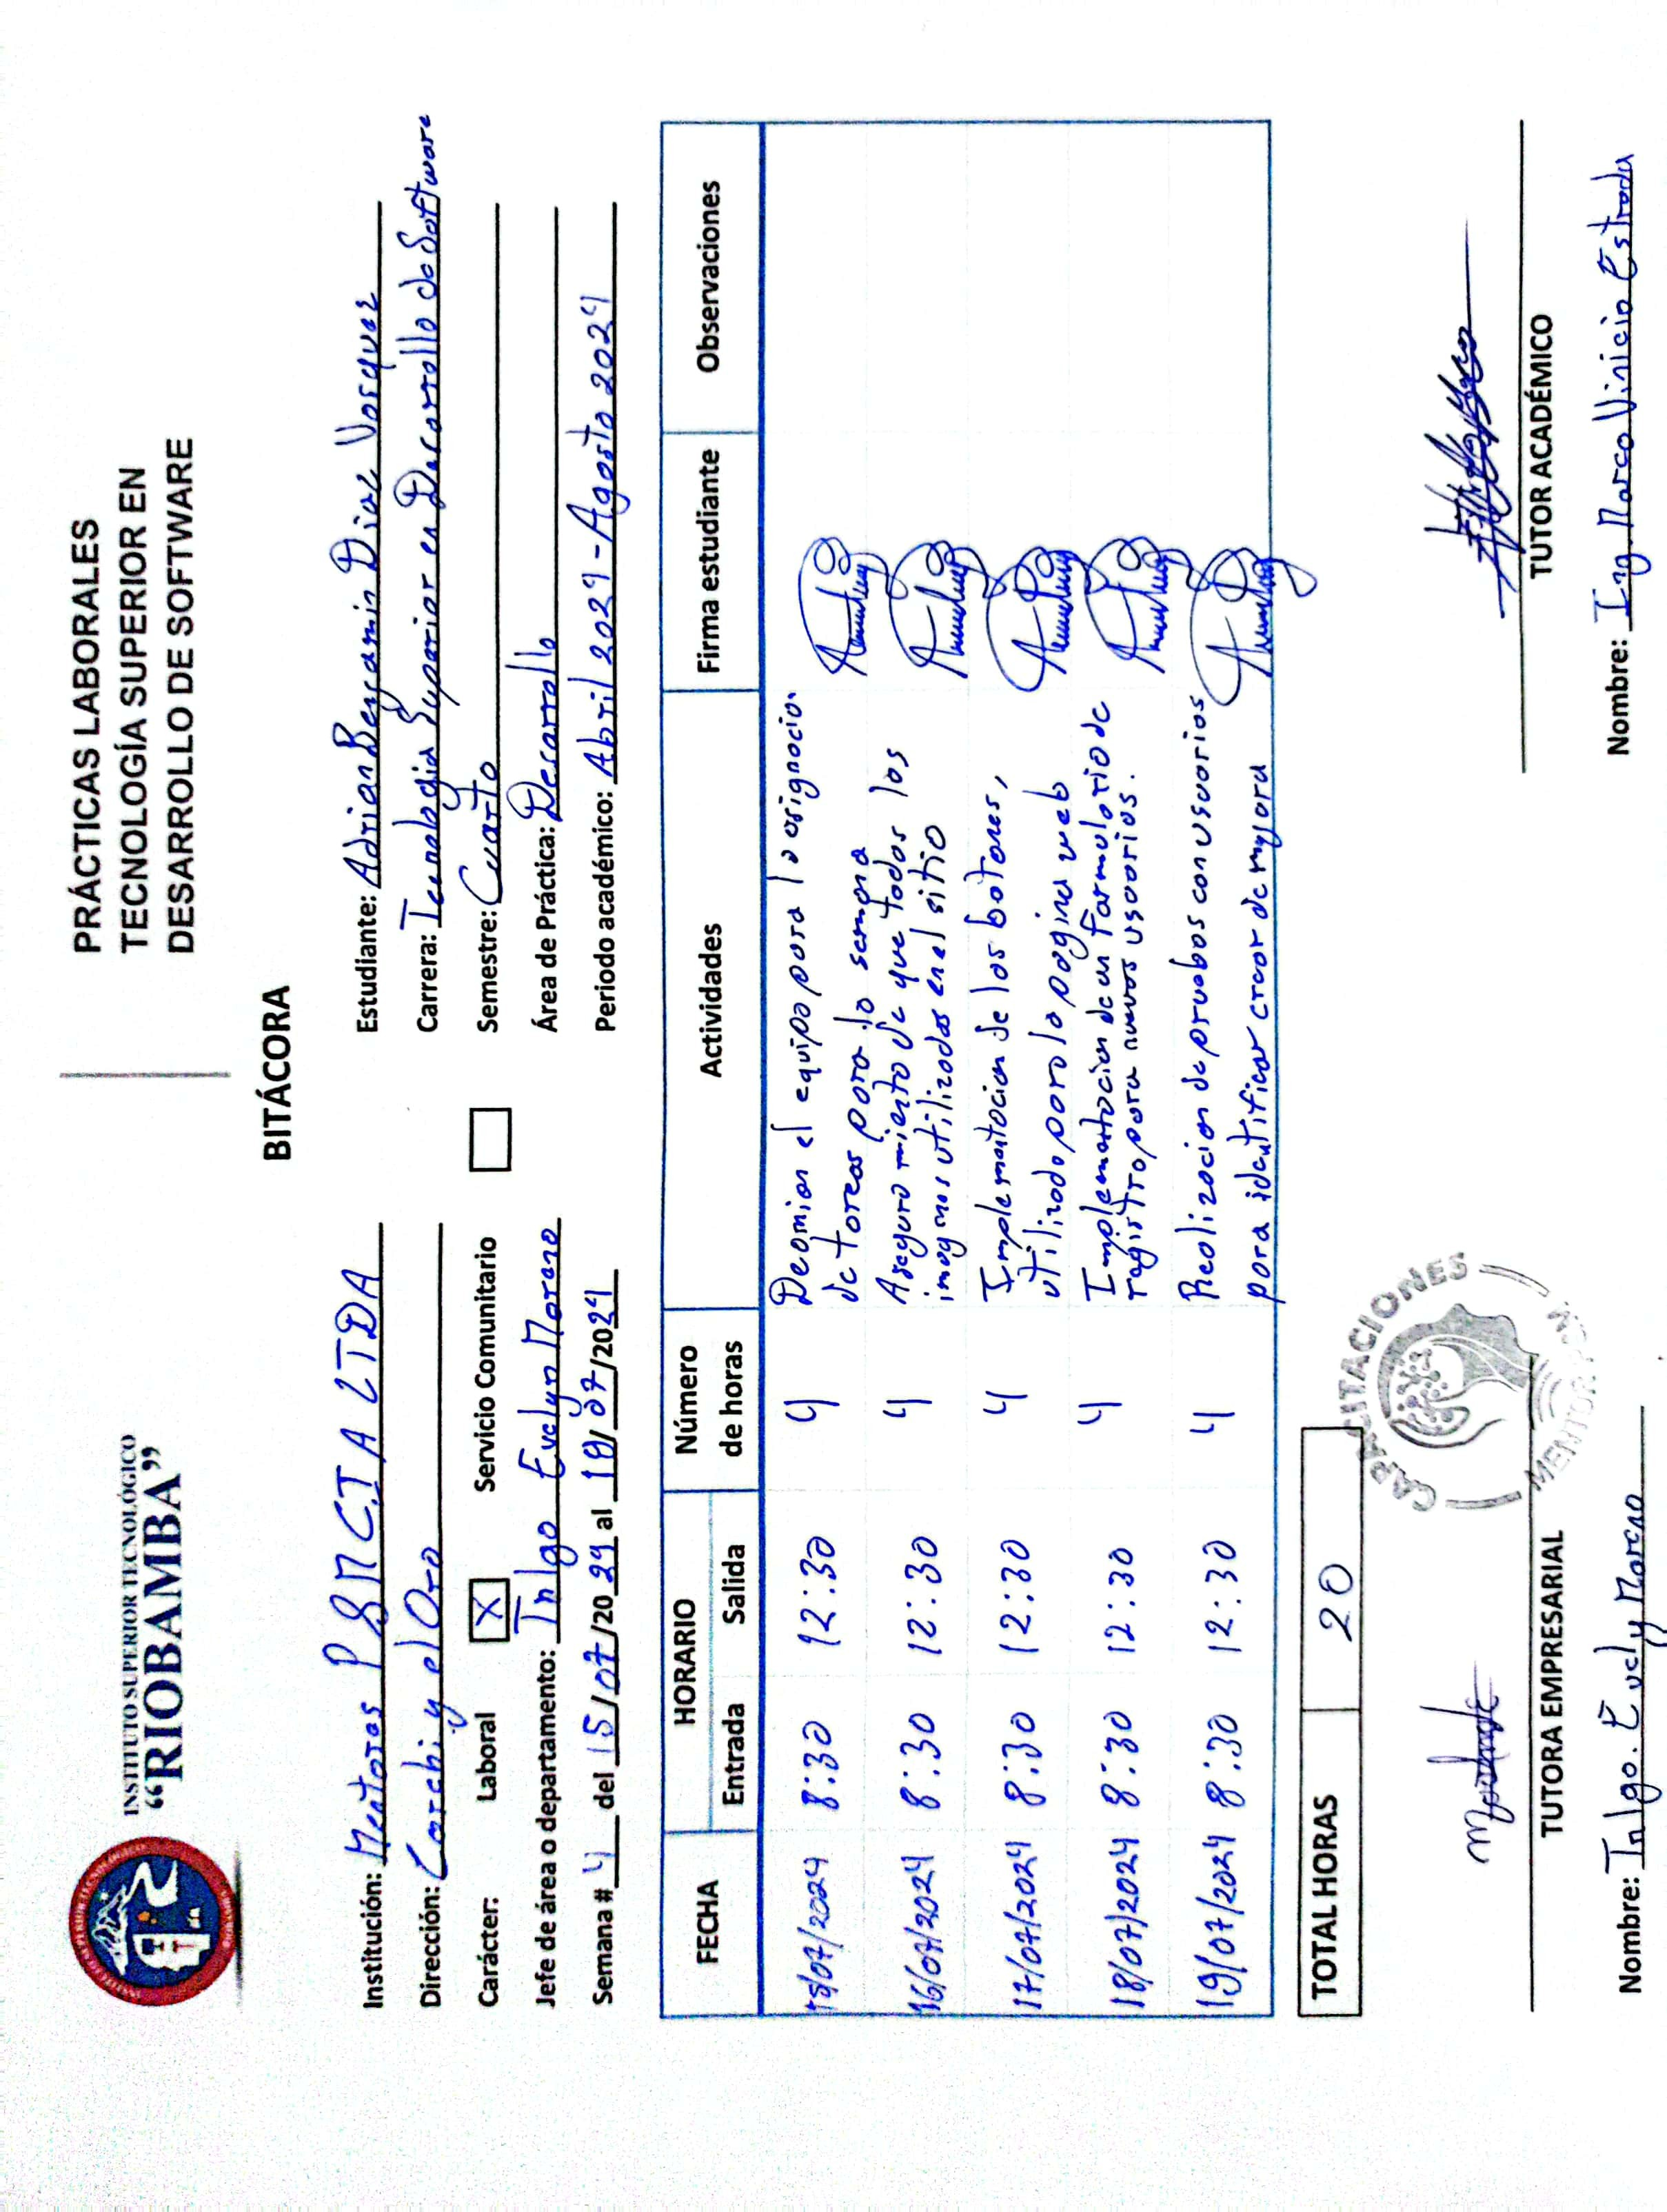 INSTITUTO SUPERIOR TECNOLÓGICO
“RIOBAMBA”
PRÁCTICAS LABORALES
TECNOLOGÍA SUPERIOR EN
DESARROLLO DE SOFTWARE
BITÁCORA
Institución: Mentores P&M CIA LTDA
Dirección: Carchi y el Oro
Carácter: Laboral X Servicio Comunitario
Jefe de área o departamento: Tnlgo Evelyn Moreno
Semana # 4 del 15/07/2024 al 19/07/2024
Estudiante: Adrian Benjamin Diaz Vasquez
Carrera: Tecnologia Superior en Desarrollo de Software
Semestre: Cuarto
Área de Práctica: Desarrollo
Periodo académico: Abril 2024 - Agosto 2024
FECHA HORARIO Número de horas Actividades Firma estudiante Observaciones
Entrada Salida
15/07/2024 8:30 12:30 4 el equipo para la asignacion
de tareas para la semana
16/07/2024 8:30 12:30 4 Aseguramiento de que todas las
imagenes utilizadas en el sitio
17/07/2024 8:30 12:30 4 Implementacion de los botones,
utilizado para la pagina web
18/07/2024 8:30 12:30 4 Implementacion de un formulario de
registro para nuevos usuarios.
19/07/2024 8:30 12:30 4 Realizacion de pruebas con usuarios
para identificar de mejora
TOTAL HORAS 20
CAPACITACIONES
TUTORA EMPRESARIAL
Nombre: Tnlgo. Evely Moreno
TUTOR ACADÉMICO
Nombre: Ing. Marco Vinicio Estrada